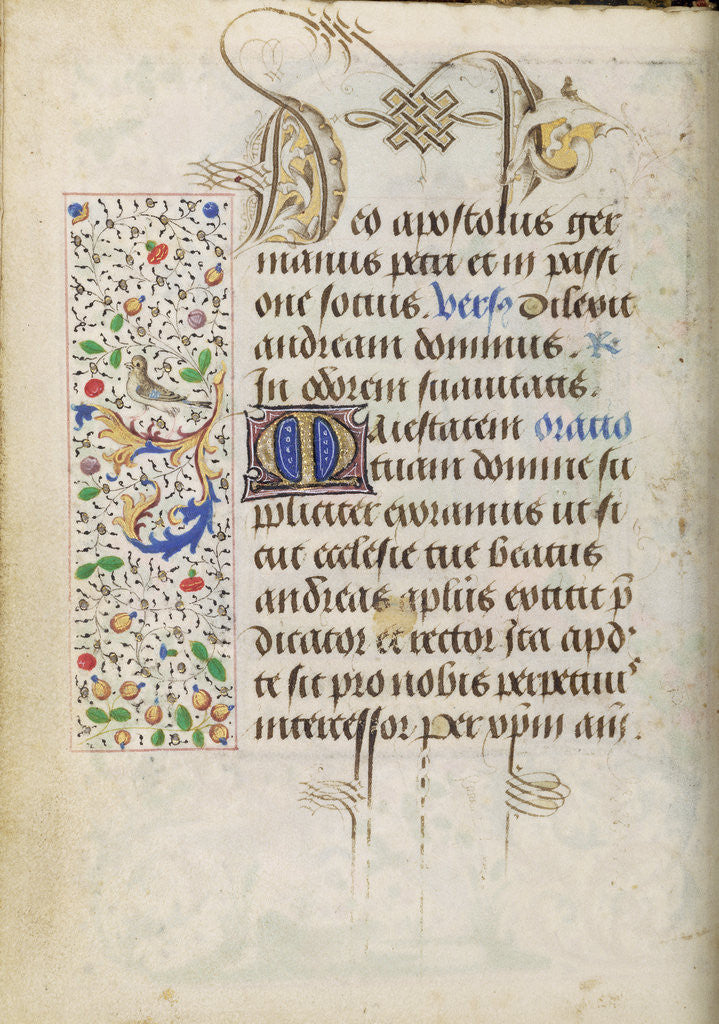 Deo apostolus ger
manus petri et in passi
one socius. Versꝰ Dilexit
andream dominus. R
In odorem suauitatis.
Maiestatem oratio
tuam domine su
ppliciter exoramus ut si
cut ecclesie tue beatus
andreas aplus extitit p̄
dicator et rector Ita apd'
te sit pro nobis perpetuus
intercessor Per xp̄m am̄.